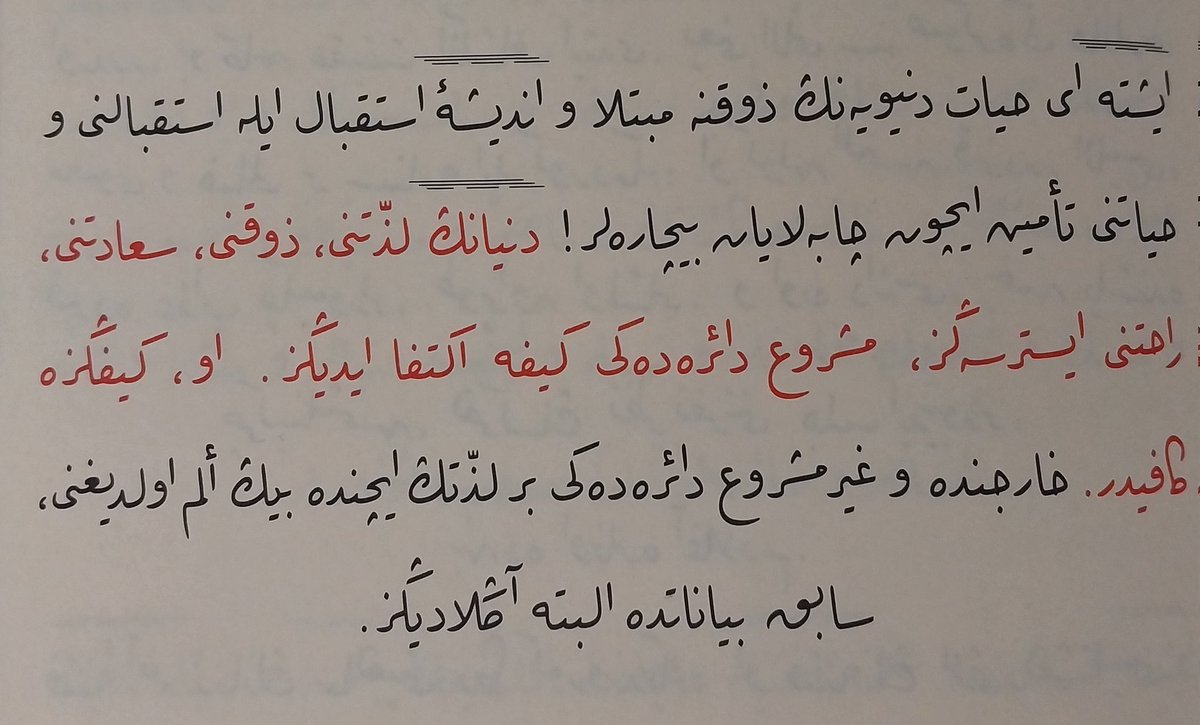 ایشته ای حیات دنیویه‌نڭ ذوقنه مبتلا و اندیشۀ استقبال ایله استقبالنی و
حیاتنی تأمین ایچون چابه‌لایان بیچاره‌لر! دنیانڭ لذّتنی، ذوقنی، سعادتنی،
راحتنی ایسترسه‌ڭز، مشروع دائره‌ده‌کی کیفه اکتفا ایدیڭز. او، کیفڭزه
کافیدر. خارجنده و غیر مشروع دائره‌ده‌کی بر لذّتڭ ایچنده بیڭ ألم اولدیغنی،
سابق بیاناتده البته آڭلادیڭز.